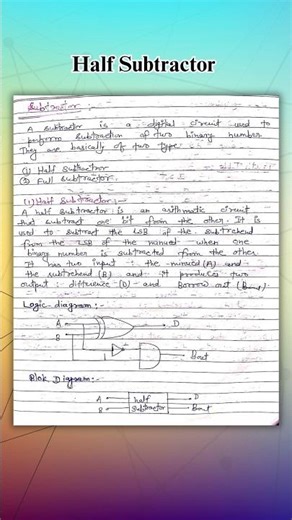 Half Subtractor
Subtractor
A subtractor is a digital circuit used to
perform subtraction of two binary number
They are basically of two type
(1) Half Subtractor
(2) Full subtractor.
(1) Half Subtractor :-
A half subtractor is an arithmetic circuit
that subtract one bit from the other. It is
used to subtract the LSB of the subtrehend
from the LSB of the when one
binary number is subtracted from the other.
It has two input :- the (A) and
the subtrehend (B) and it produces two
output :- difference (D) and Borrow out (Bout).
Logic diagram :-
A
D
B
Bout
Blok Diagram :-
A
half
D
B
subtractor
Bout